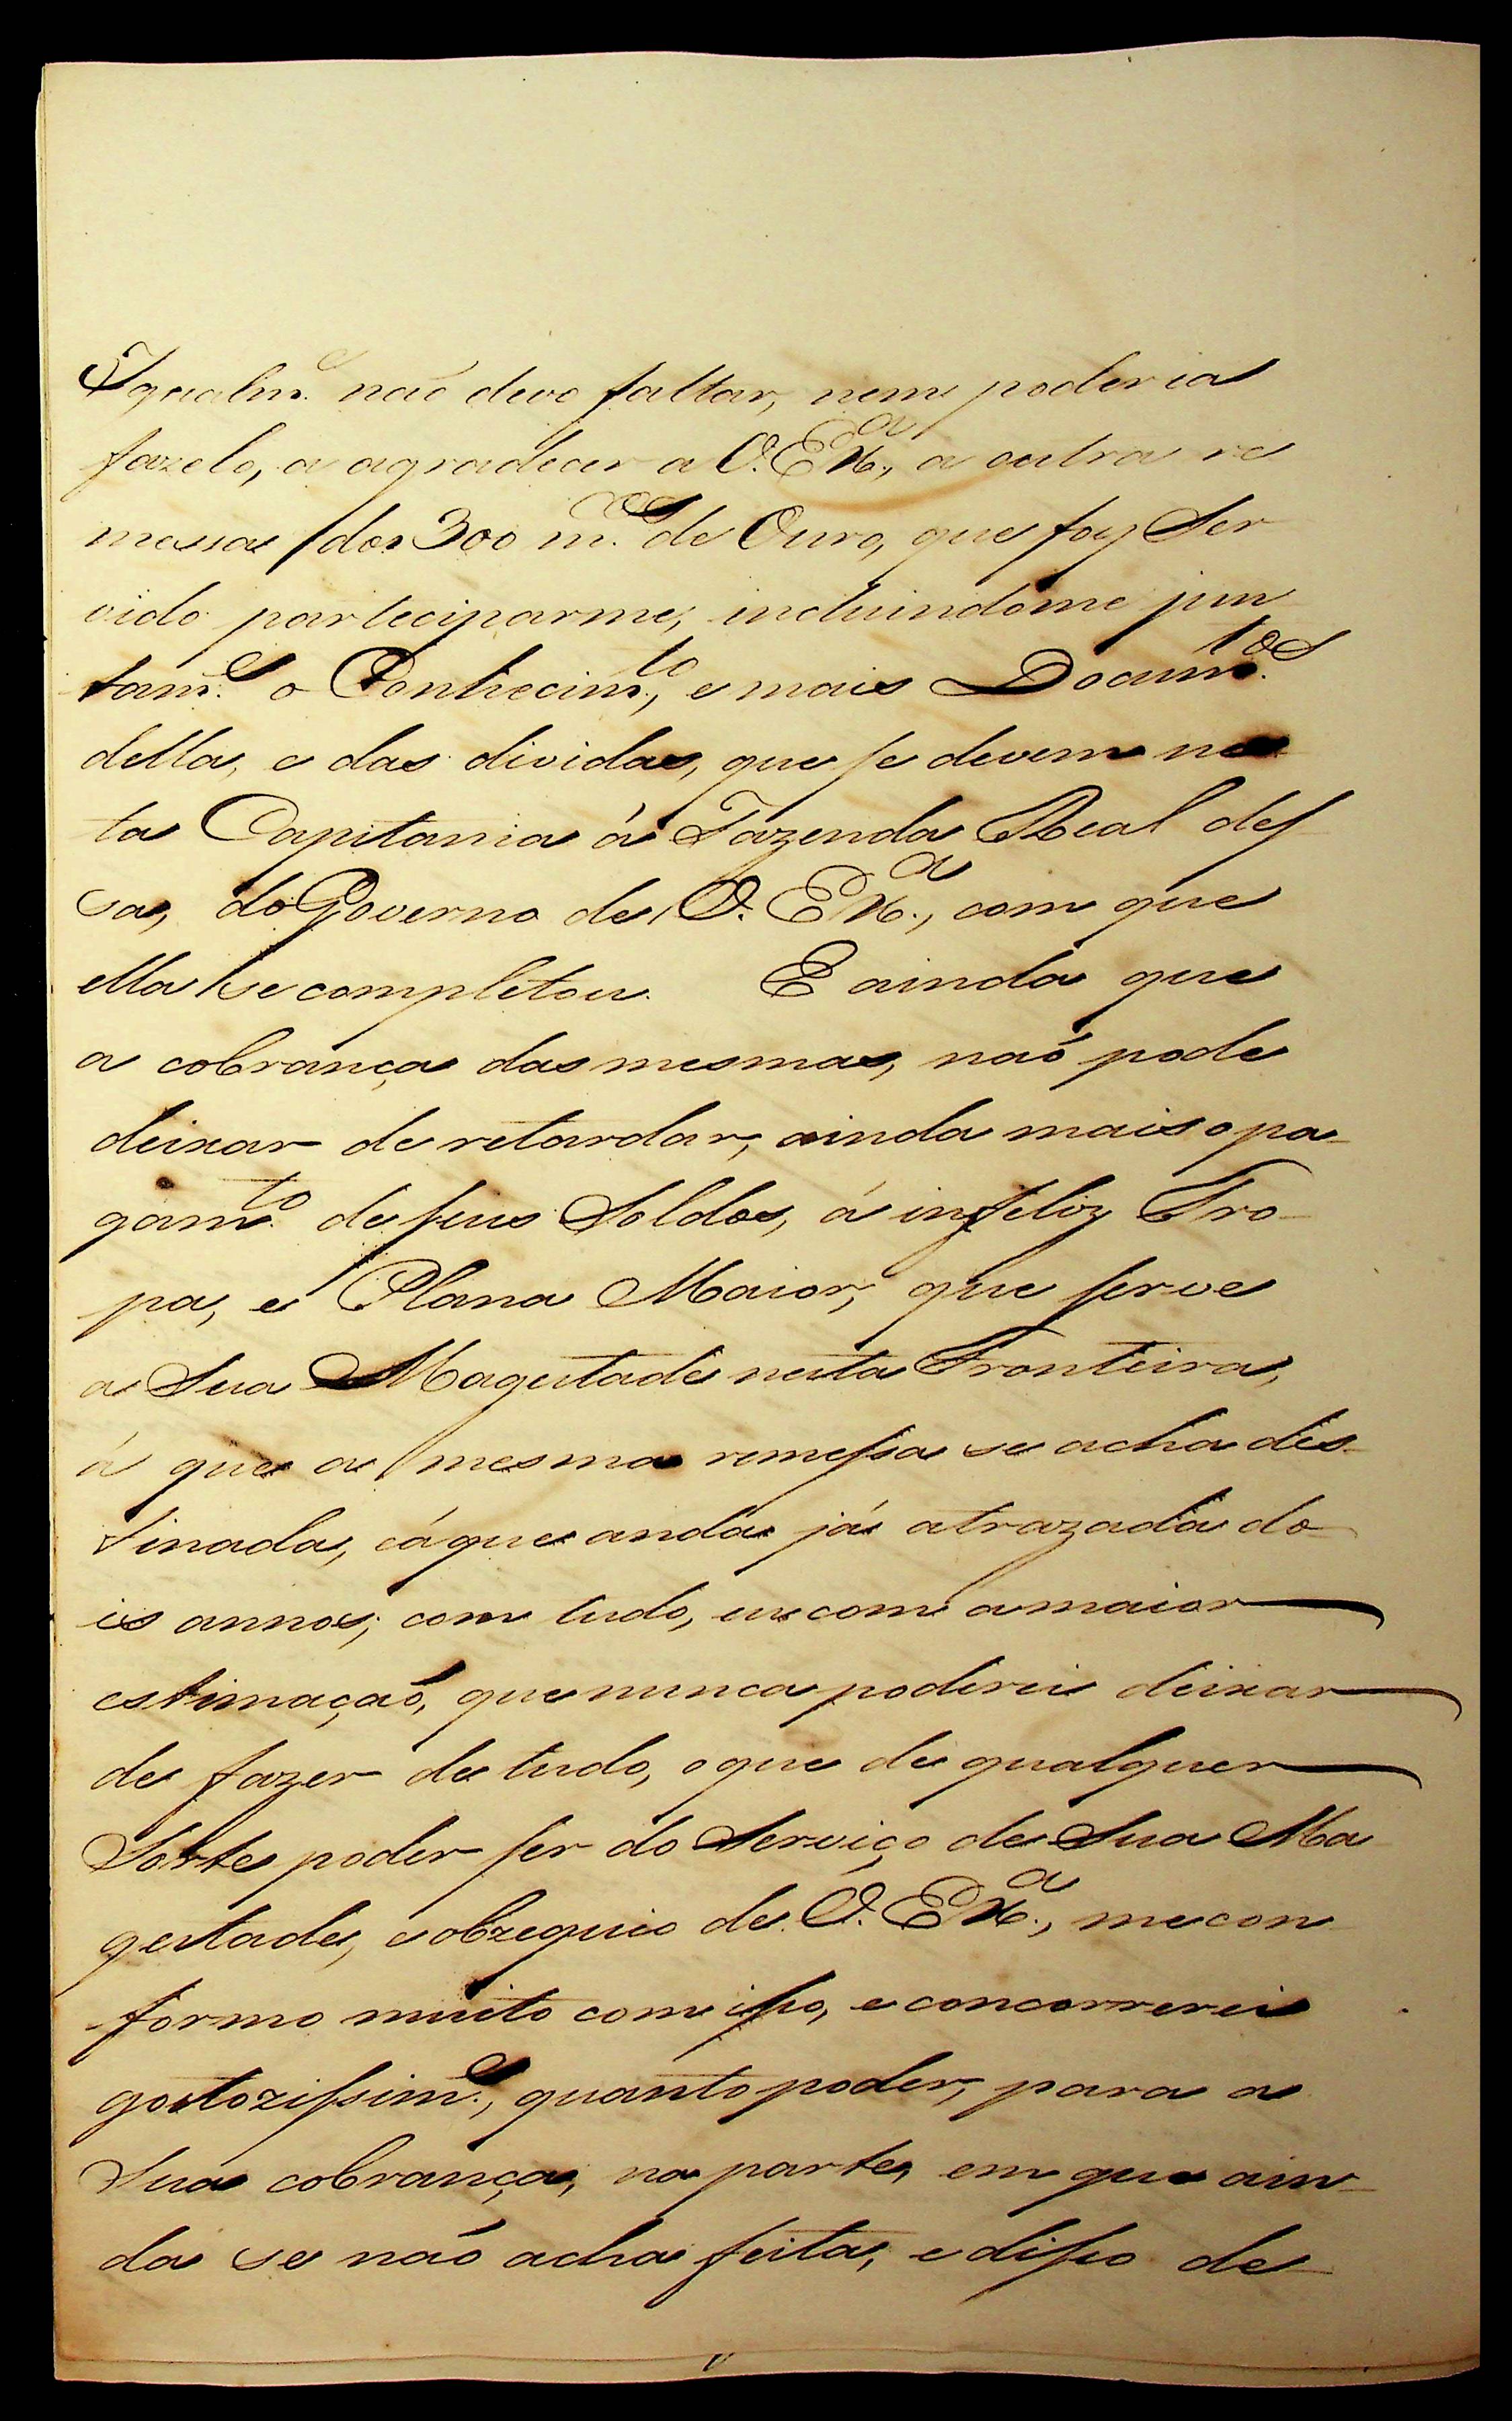 Igualm.e não devo faltar, nem poderia
fazelo, a agradecer a V. Ex.a, a outra re
messa dos 300 m.os de Ouro, que foy Ser
vido parteciparme, incluindome jun
tam.e o Conhecim.to, e mais Docum.tos
della, e das dividas, que se devem nes
ta Capitania á Fazenda Real des
sa, do Governo de V. Ex.a, com que
ella se completou. E ainda que
a cobrança das mesmas, naõ pode
deixar de retardar, ainda mais o pa-
gam.to de seus Soldos, á infeliz Tro-
pa, e Plana Maior, que serve
a Sua Magestade nesta Fronteira,
á que a mesma remessa se acha des-
tinada, e á que anda já atrazada do
is annos; com tudo, eu com a maior
estimaçaõ, que nunca poderei deixar
de fazer de tudo, o que de qualquer
Sorte poder ser do Serviço de Sua Ma
gestade, e obzequio de V. Ex.a, me con
formo muito com isso, e concorrerei
gostozissim.e, quanto poder, para a
Sua cobrança, na parte, em que ain-
da se não acha feita, e disso de